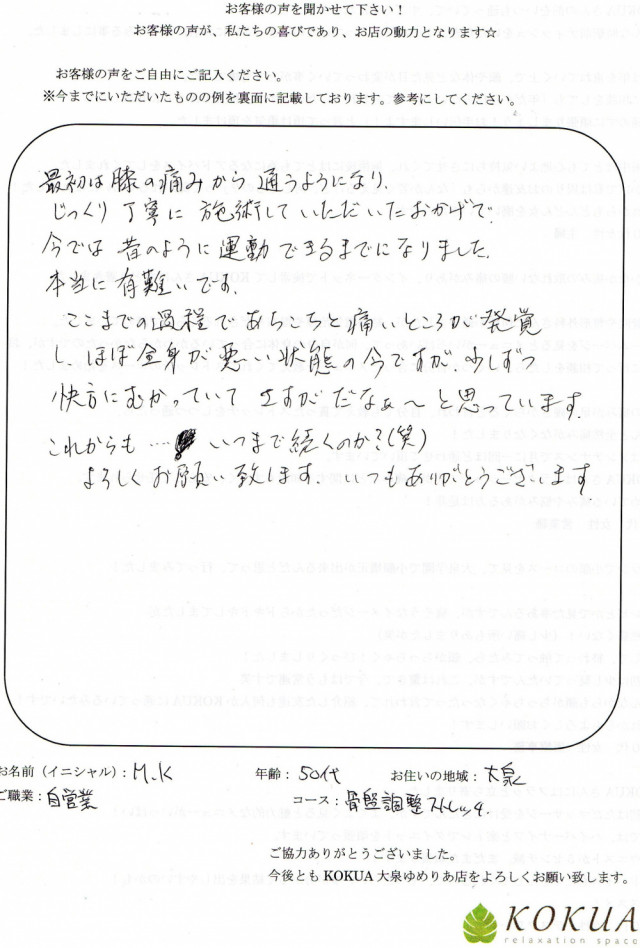 お客様の声を聞かせて下さい！
お客様の声が、私たちの喜びであり、お店の動力となります☆
お客様の声をご自由にご記入ください。
※今までにいただいたものの例を裏面に記載しております。参考にしてください。
最初は膝の痛みから通うようになり、
じっくり丁寧に施術していただいたおかげで
今では昔のように運動できるまでになりました。
本当に有難いです。
ここまでの過程であちこちと痛いところが発覚
し、ほぼ全身が悪い状態の今ですが、少しずつ
快方にむかっていてさすがだなぁ〜と思っています。
これからも… いつまで続くのか?(笑)
よろしくお願い致します。いつもありがとうございます。
お名前（イニシャル）：M.K 年齢：50代 お住いの地域：大泉
ご職業：自営業 コース：骨盤調整ストレッチ
ご協力ありがとうございました。
今後とも KOKUA 大泉ゆめりあ店をよろしくお願い致します。
KOKUA
relaxation space